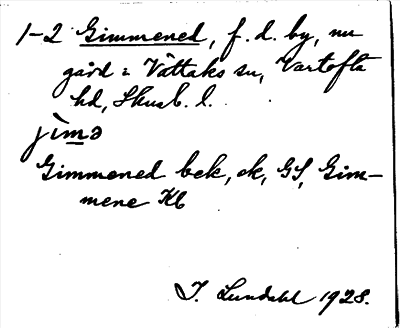 1-2 Gimmened, f. d. by, nu
gård i Vättaks sn, Vartofta
hd, Skarab. l.
jìmə
Gimmened bek, ek, GS, Gim-
mene Kb
I. Lundahl 1928.